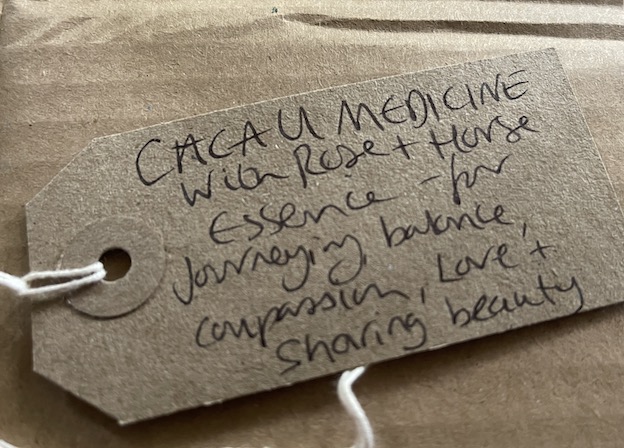 CACAU MEDICINE
with Rose + Horse
Essence - for
Journeying, balance,
compassion, Love +
Sharing beauty